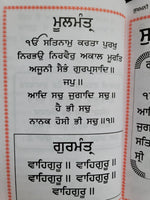 ਮੂਲਮੰਤ੍ਰ
ੴ ਸਤਿਨਾਮੁ ਕਰਤਾ ਪੁਰਖੁ
ਨਿਰਭਉ ਨਿਰਵੈਰੁ ਅਕਾਲ ਮੂਰਤਿ
ਅਜੂਨੀ ਸੈਭੰ ਗੁਰਪ੍ਰਸਾਦਿ॥
ਜਪੁ॥
ਆਦਿ ਸਚੁ ਜੁਗਾਦਿ ਸਚੁ॥
ਹੈ ਭੀ ਸਚੁ
ਨਾਨਕ ਹੋਸੀ ਭੀ ਸਚੁ॥੧॥
ਗੁਰਮੰਤ੍ਰ
ਵਾਹਿਗੁਰੂ॥ ਵਾਹਿਗੁਰੂ॥
ਵਾਹਿਗੁਰੂ॥ ਵਾਹਿਗੁਰੂ॥
ਵਾਹਿਗੁਰੂ॥